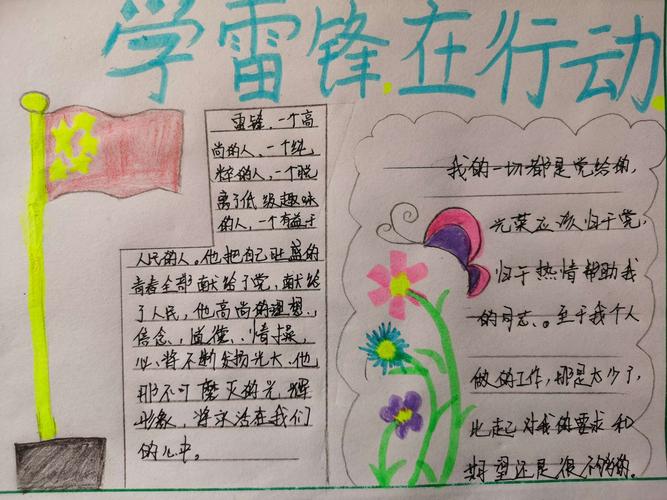 学雷锋在行动
雷锋,一个高
尚的人,一个纯
粹的人,一个脱
离了低级趣味
的人,一个有益于
人民的人。他把自己旺盛的
青春全部献给了党,献给
了人民,他高尚的理想、
信念、道德、情操,
必将不断发扬光大,他
那不可磨灭的光辉
形象,将永活在我们
的心中。
我的一切都是党给的,
光荣应该归于党,
归于热情帮助我
的同志。至于我个人
做的工作,那是太少了,
比起党对我的要求和
期望还是很不够的。